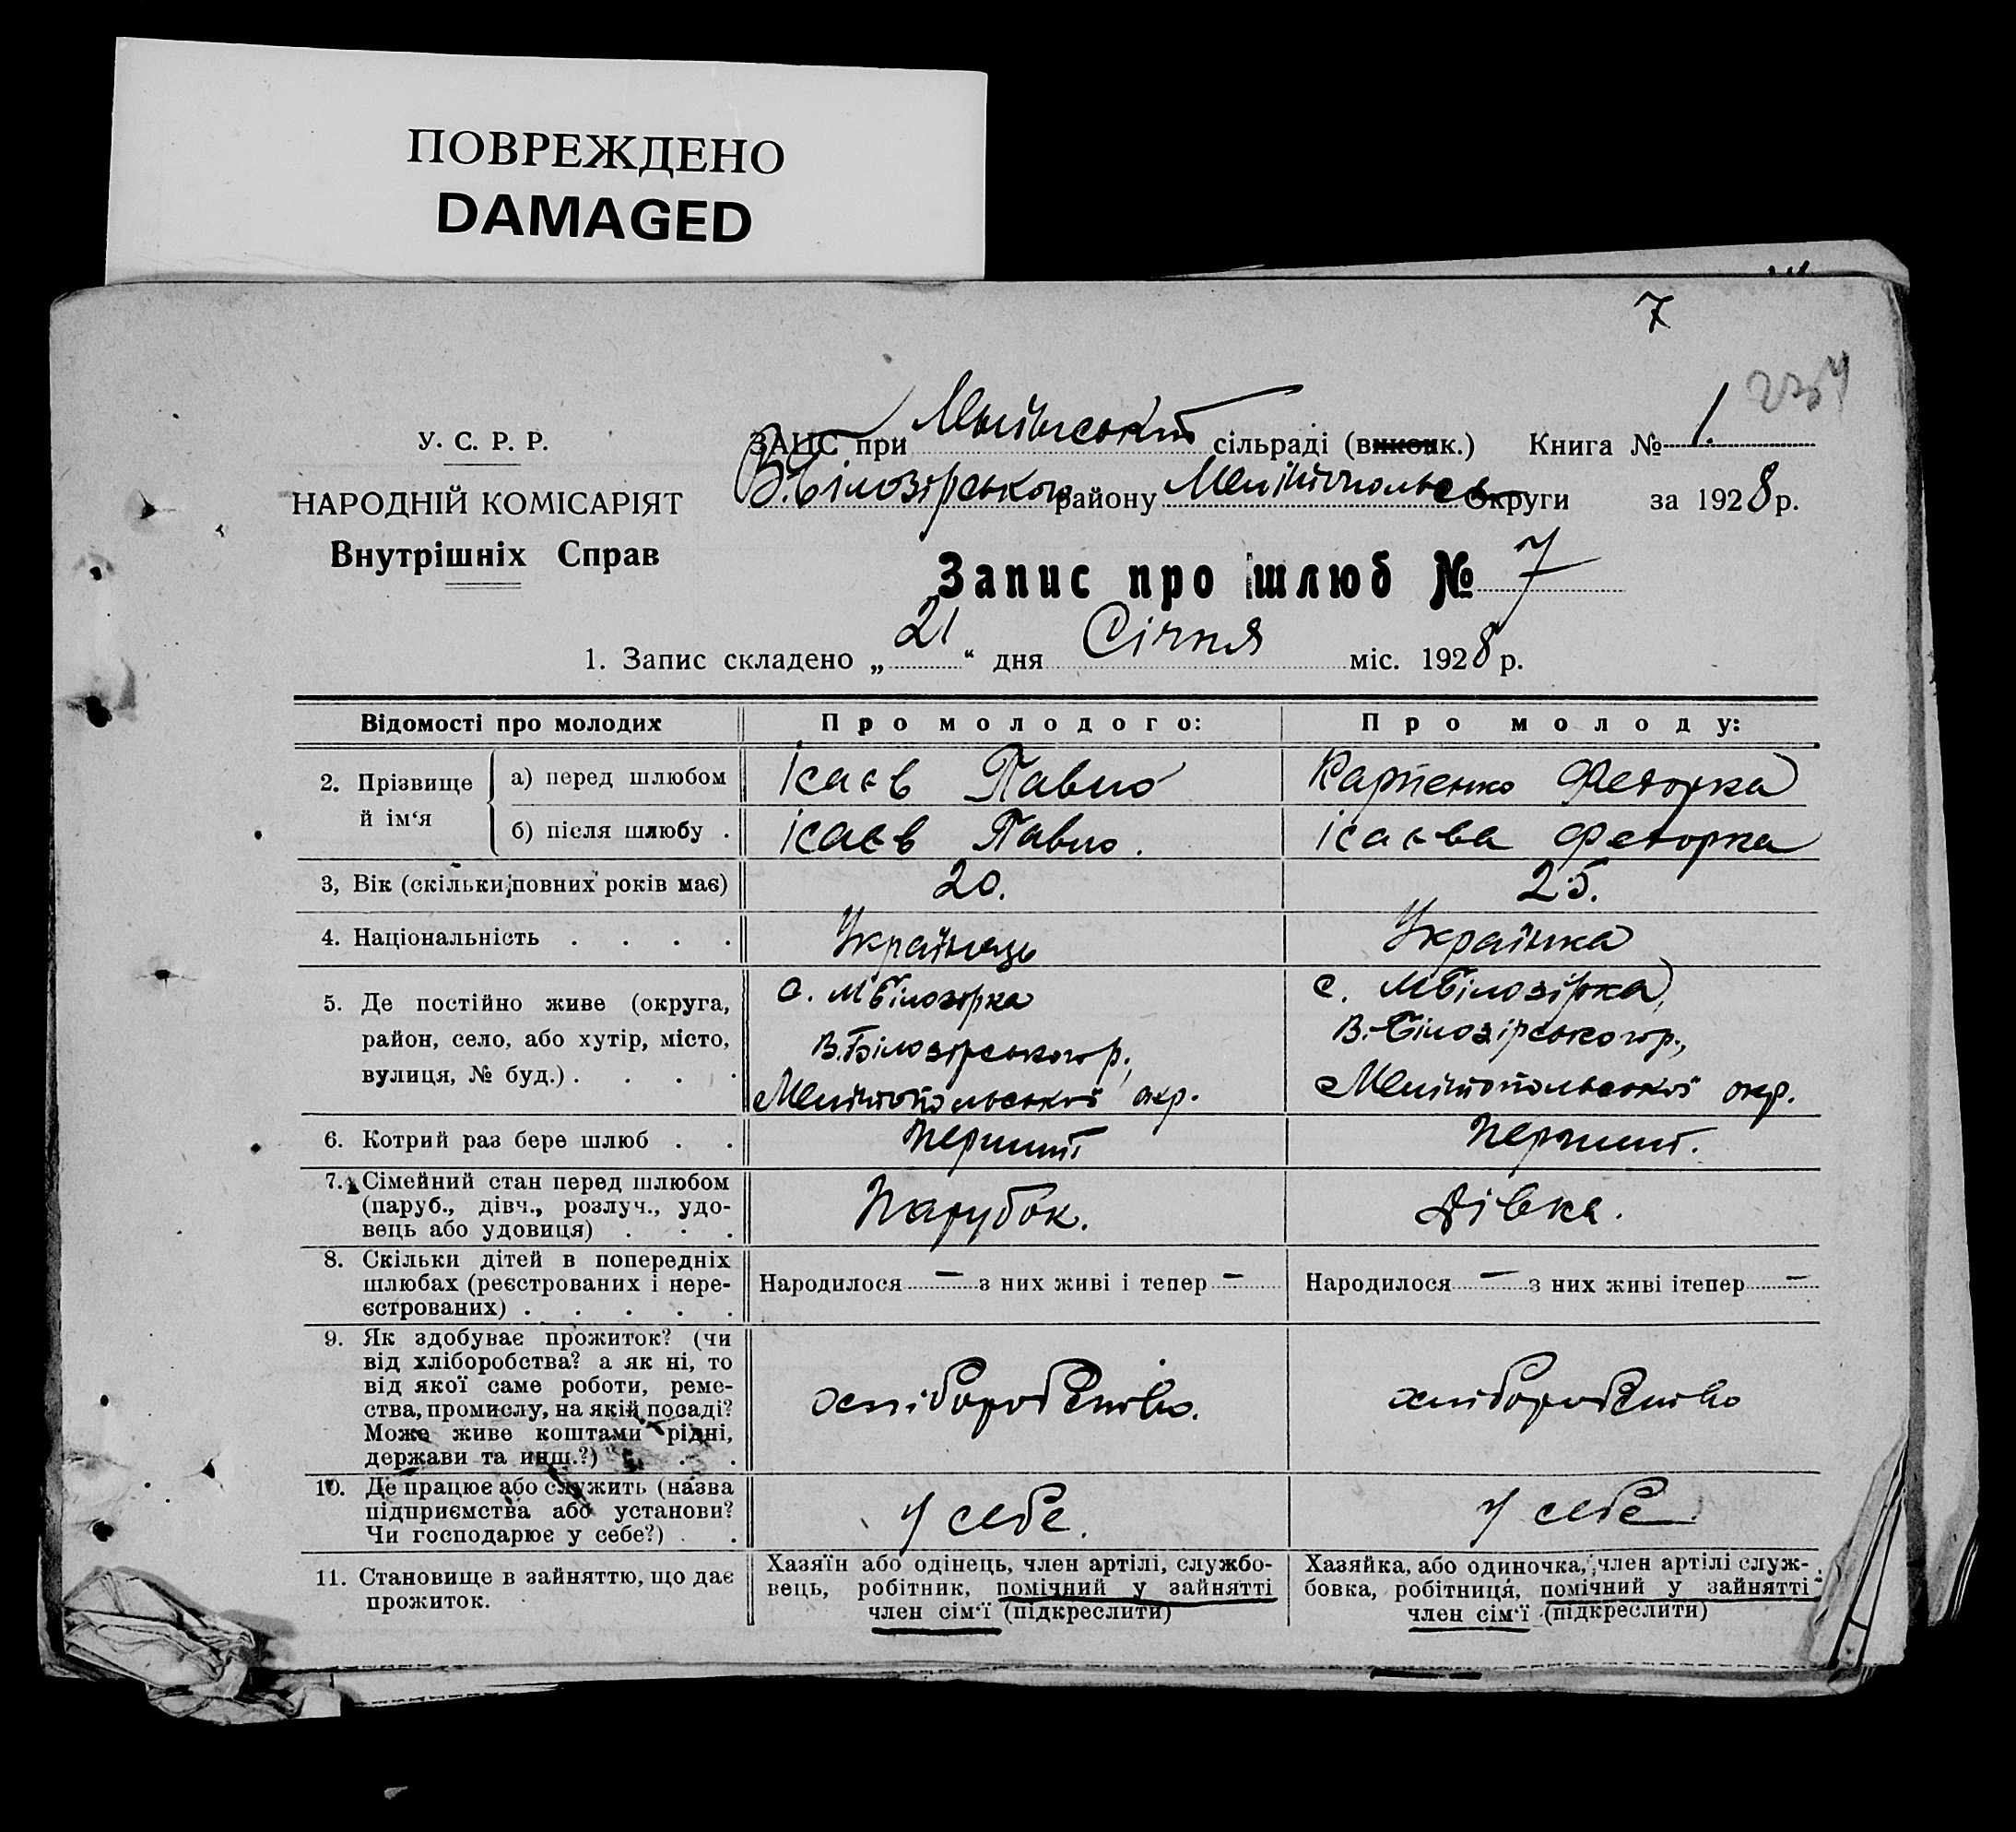 ПОВРЕЖДЕНО
DAMAGED
7
У. С. Р. Р.
НАРОДНІЙ КОМІСАРІЯТ
Внутрішніх Справ
ЗАЦС при сільраді (виконк.) Книга № 1.
В. Білозірського району Мелітопольськ округи за 1928 р.
Запис про шлюб № 7
1. Запис складено „21“ дня Січня міс. 1928 р.
Відомості про молодих Про молодого: Про молоду:
2. Прізвище й ім‘я
а) перед шлюбом Ісаєв Павло Карпенко Федорка
б) після шлюбу . Ісаєв Павло. Ісаєва Федорка
3, Вік (скільки повних років має) 20. 25.
4. Національність . . . . Українець Українка
5. Де постійно живе (округа,
район, село, або хутір, місто,
вулиця, № буд.) . . . .
с. МБілозірка
В. Білозірського р.,
Мелітопольської окр.
с. МБілозірка,
В.-Білозірського р.,
Мелітопольської окр.
6. Котрий раз бере шлюб . . перший перший.
7. Сімейний стан перед шлюбом
(паруб., дівч., розлуч., удо-
вець або удовиця) . . .
Парубок. Дівка.
8. Скільки дітей в попередніх
шлюбах (реєстрованих і нере-
єстрованих) . . . . .
Народилося — з них живі і тепер — Народилося — з них живі ітепер —
9. Як здобуває прожиток? (чи
від хліборобства? а як ні, то
від якої саме роботи, реме-
ства, промислу, на якій посаді?
Може живе коштами рідні,
держави та инш.?) . . .
хліборобство. хліборобство
10. Де працює або служить (назва
підприємства або установи?
Чи господарює у себе?) . .
у себе. у себе
11. Становище в зайняттю, що дає
прожиток.
Хазяїн або одінець, член артілі, службо-
вець, робітник, помічний у зайнятті
член сім‘ї (підкреслити)
Хазяйка, або одиночка, член артілі служ-
бовка, робітниця, помічний у зайнятті
член сім‘ї (підкреслити)